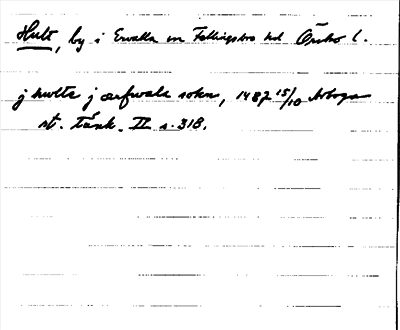 Hult, by i Ervalla sn Fellingsbro hd Örebro l.
j hwlta j ærfwala sokn, 1487 15/10 Arboga
st. tänk. II s. 318.